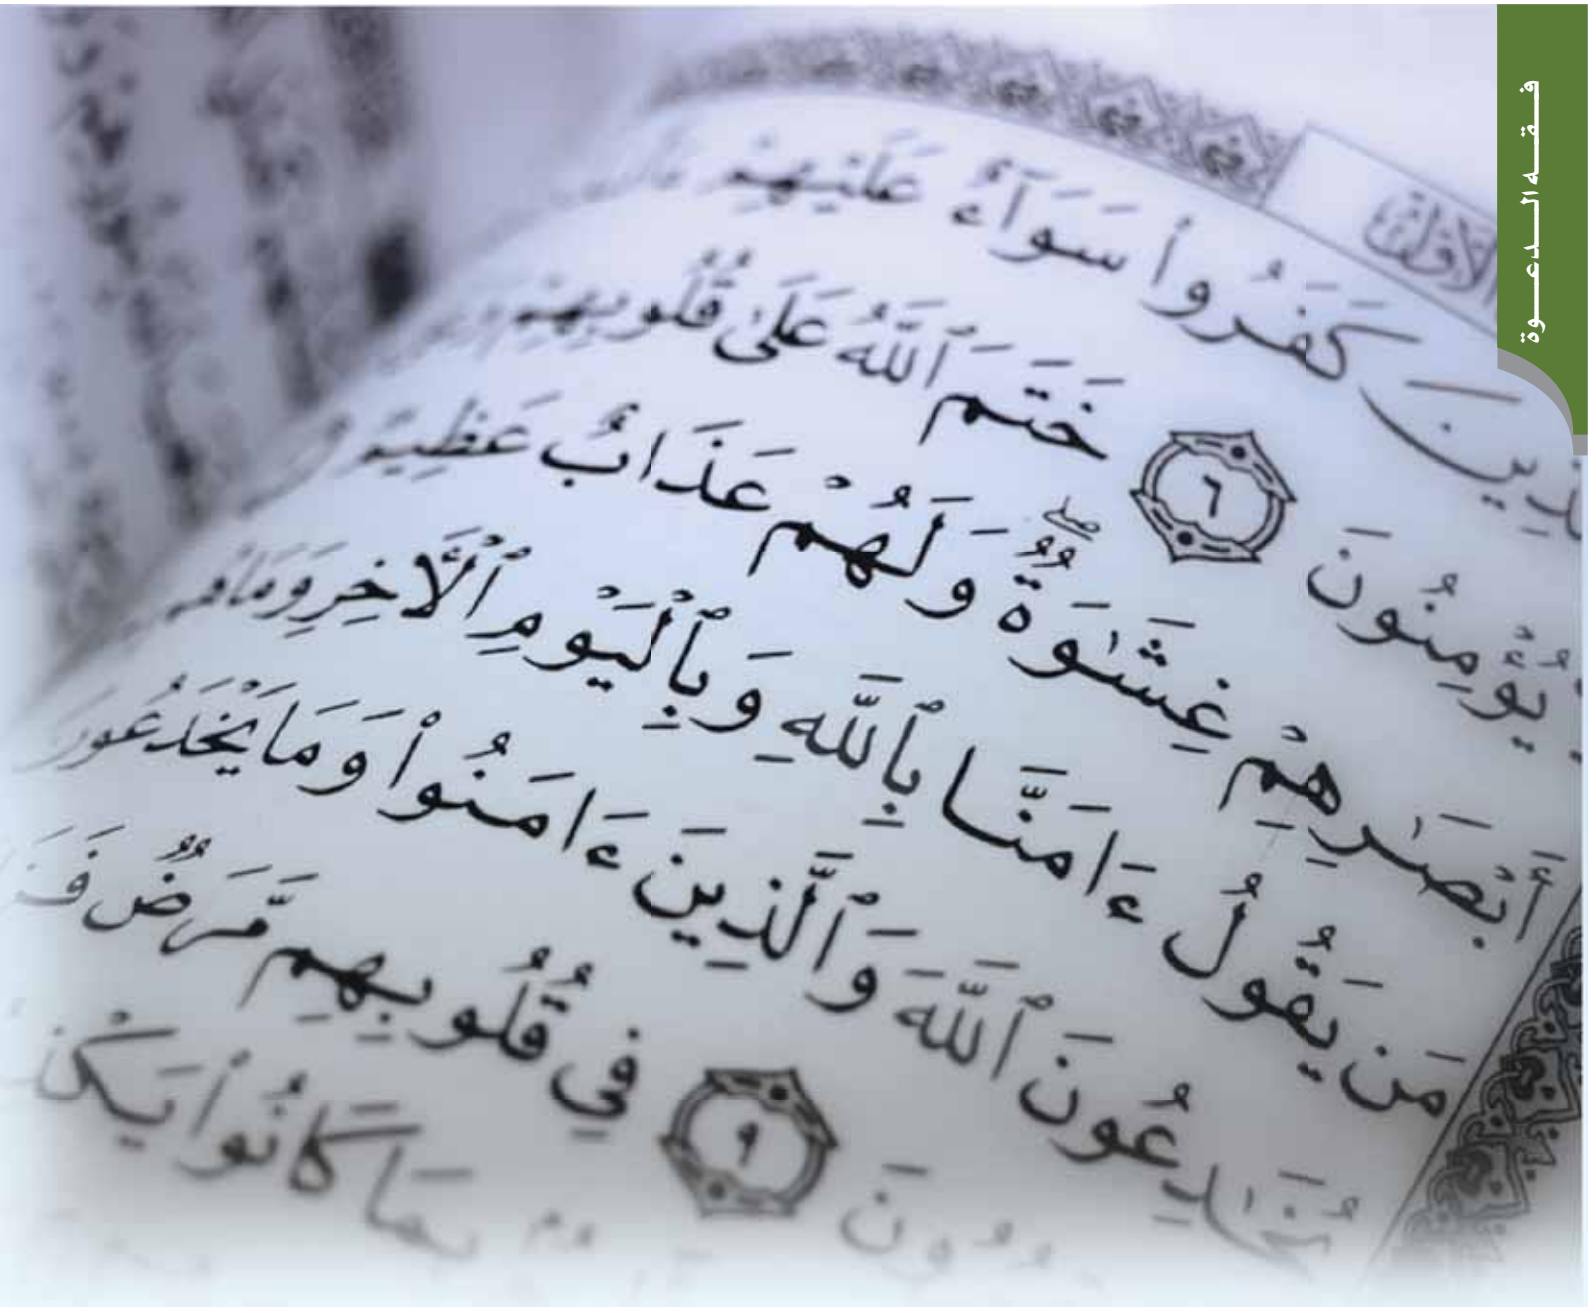 فقه الدعوة
كَفَرُوا۟ سَوَآءٌ عَلَيْهِمْ
يُؤْمِنُونَ ٦ خَتَمَ ٱللَّهُ عَلَىٰ قُلُوبِهِمْ
أَبْصَـٰرِهِمْ غِشَـٰوَةٌ ۖ وَلَهُمْ عَذَابٌ عَظِيمٌ
مَن يَقُولُ ءَامَنَّا بِٱللَّهِ وَبِٱلْيَوْمِ ٱلْـَٔاخِرِ وَمَا هُم
يُخَـٰدِعُونَ ٱللَّهَ وَٱلَّذِينَ ءَامَنُوا۟ وَمَا يَخْدَعُونَ
٩ فِى قُلُوبِهِم مَّرَضٌ
بِمَا كَانُوا۟